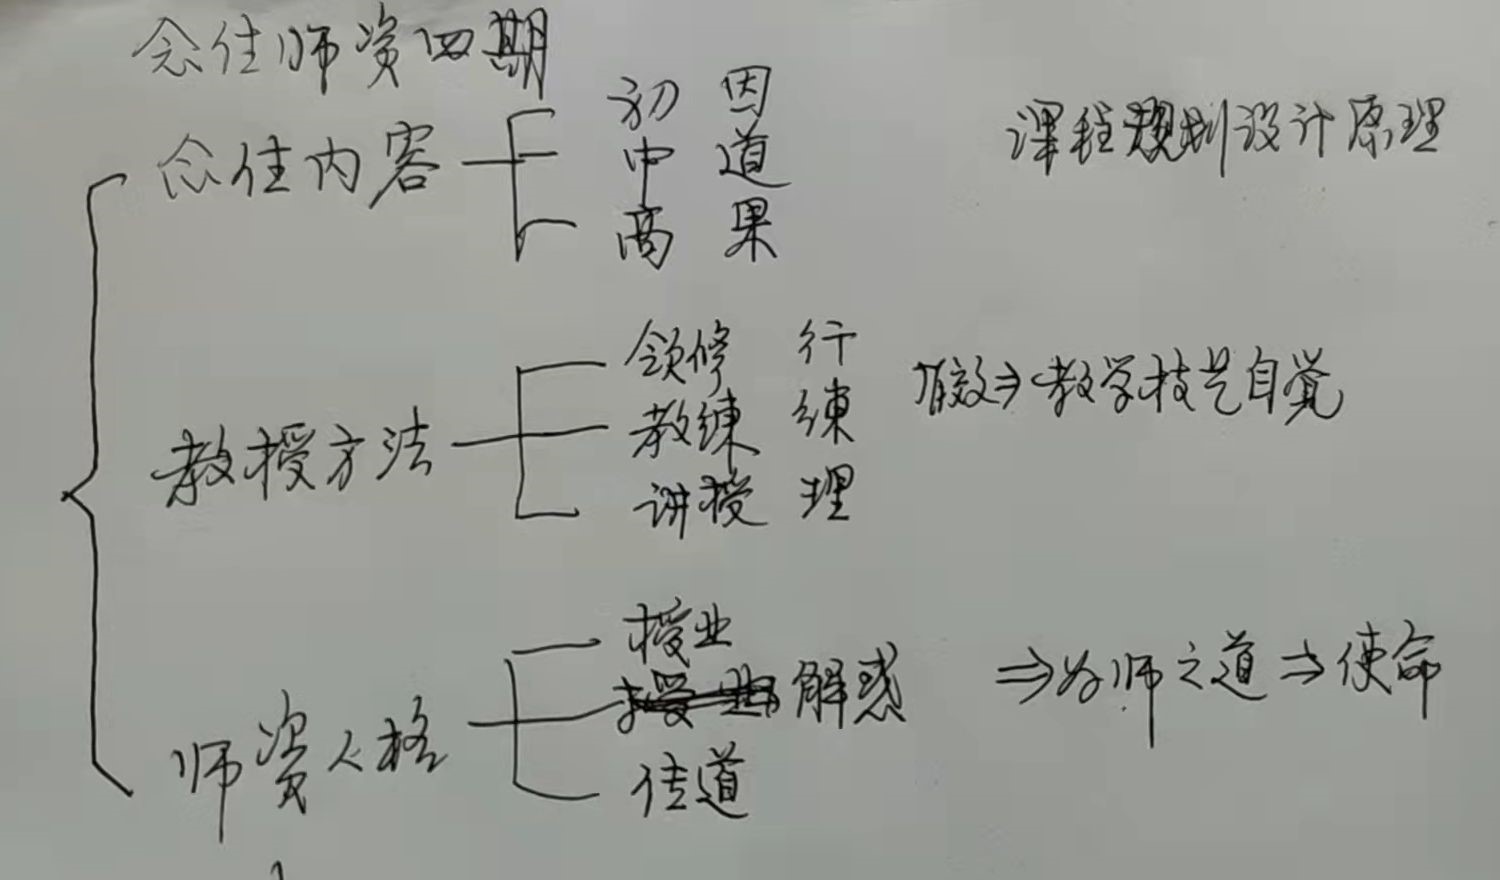 念住师资四期
念住内容 初 因 课程规划设计原理
中 道
高 果
教授方法 领修 行 有效⇒教学技艺自觉
教练 练
讲授 理
师资人格 授业
解惑 ⇒为师之道⇒使命
传道